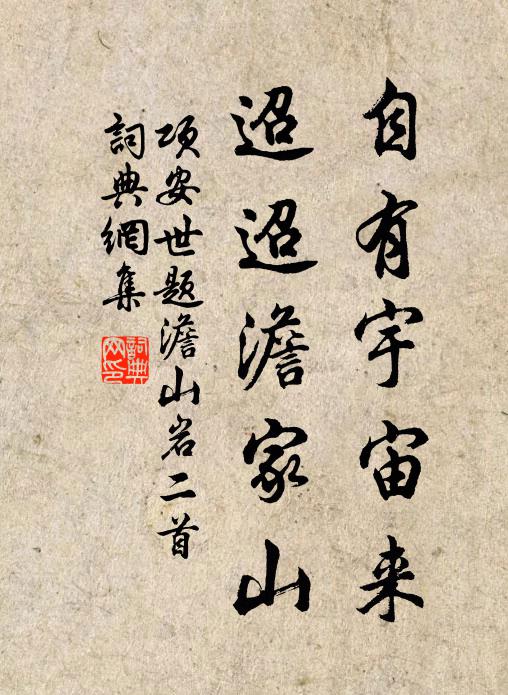 自有宇宙来
迢迢澹家山
项安世题澹山岩二首
詞典網集
詞典網印